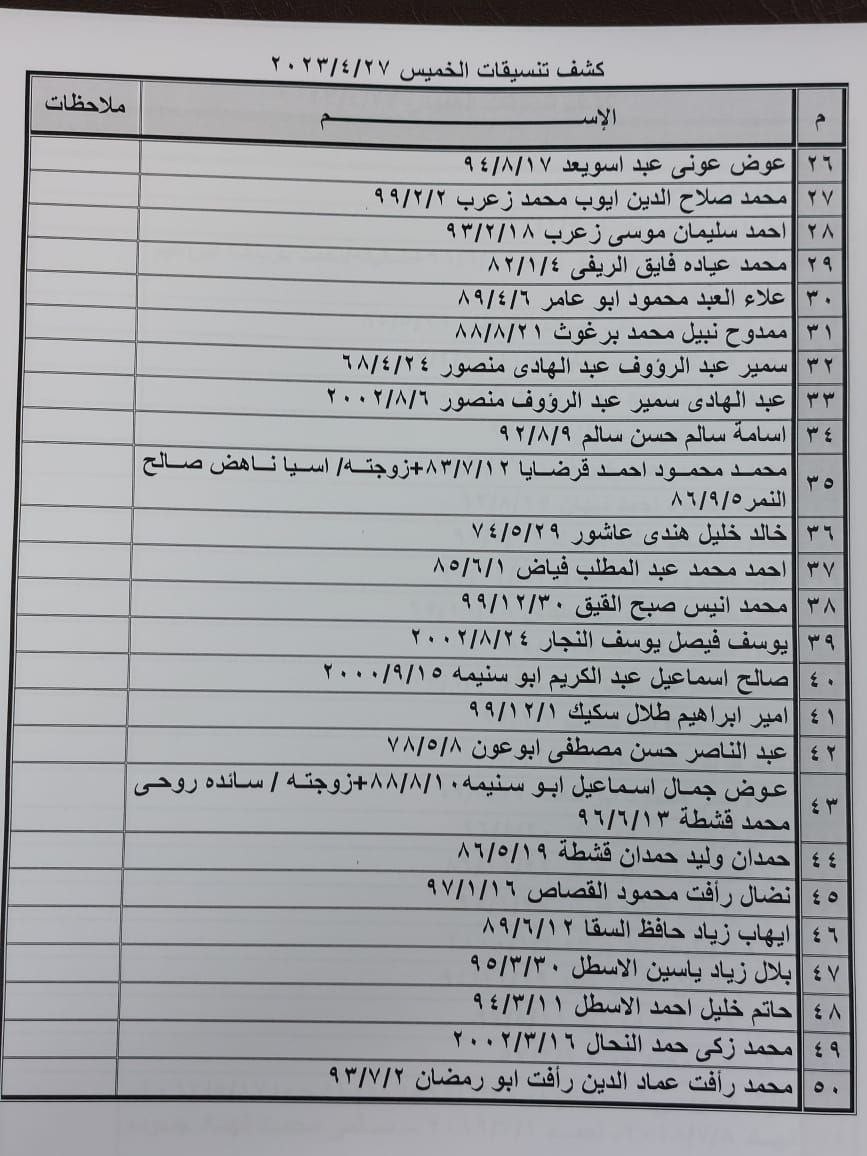 كشف تنسيقات الخميس ٢٠٢٣/٤/٢٧
م الإســــــــم ملاحظات
٢٦ عوض عونى عبد اسويعد ٩٤/٨/١٧
٢٧ محمد صلاح الدين ايوب محمد زعرب ٩٩/٢/٢
٢٨ احمد سليمان موسى زعرب ٩٣/٢/١٨
٢٩ محمد عياده فايق الريفى ٨٢/١/٤
٣٠ علاء العبد محمود ابو عامر ٨٩/٤/٦
٣١ ممدوح نبيل محمد برغوث ٨٨/٨/٢١
٣٢ سمير عبد الرؤوف عبد الهادى منصور ٦٨/٤/٢٤
٣٣ عبد الهادى سمير عبد الرؤوف منصور ٢٠٠٢/٨/٦
٣٤ اسامة سالم حسن سالم ٩٢/٨/٩
٣٥ محمد محمود احمد قرضايا ٨٣/٧/١٢+زوجته/ اسيا ناهض صالح
النمر٨٦/٩/٥
٣٦ خالد خليل هندى عاشور ٧٤/٥/٢٩
٣٧ احمد محمد عبد المطلب فياض ٨٥/٦/١
٣٨ محمد انيس صبح القيق ٩٩/١٢/٣٠
٣٩ يوسف فيصل يوسف النجار ٢٠٠٢/٨/٢٤
٤٠ صالح اسماعيل عبد الكريم ابو سنيمه ٢٠٠٠/٩/١٥
٤١ امير ابراهيم طلال سكيك ٩٩/١٢/١
٤٢ عبد الناصر حسن مصطفى ابوعون ٧٨/٥/٨
٤٣ عوض جمال اسماعيل ابو سنيمه٨٨/٨/١٠+زوجته / سائده روحى
محمد قشطة ٩٦/٦/١٣
٤٤ حمدان وليد حمدان قشطة ٨٦/٥/١٩
٤٥ نضال رأفت محمود القصاص ٩٧/١/١٦
٤٦ ايهاب زياد حافظ السقا ٨٩/٦/١٢
٤٧ بلال زياد ياسين الاسطل ٩٥/٣/٣٠
٤٨ حاتم خليل احمد الاسطل ٩٤/٣/١١
٤٩ محمد زكى حمد النحال ٢٠٠٢/٣/١٦
٥٠ محمد رأفت عماد الدين رأفت ابو رمضان ٩٣/٧/٢